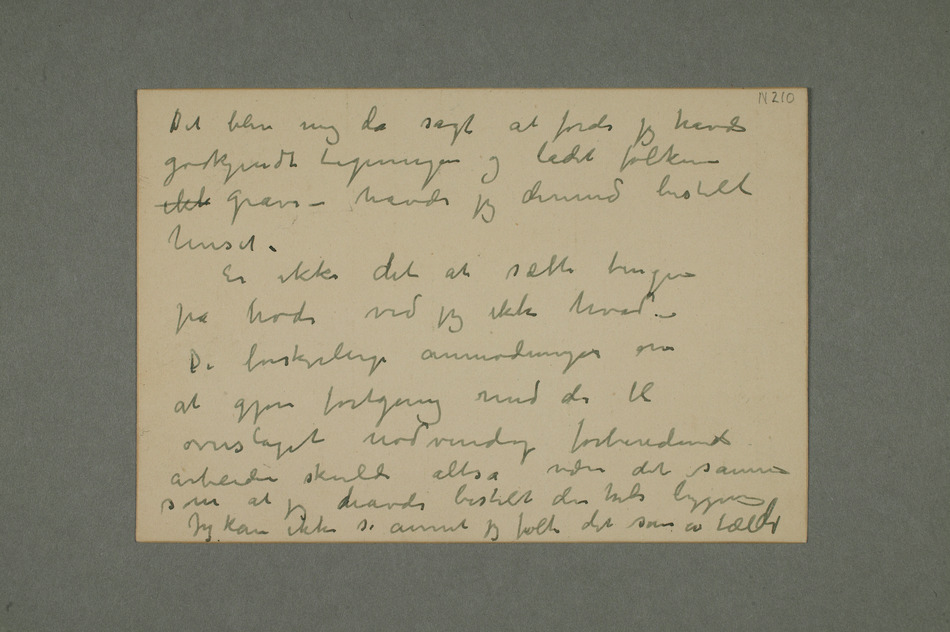 N 210
Det blev mig da sagt at fordi jeg havde
godkjendt tegningen og ladet folkene
ikke grave – havde jeg dermed bestilt
huset.
Er ikke det at sætte tingene
på hode ved jeg ikke hvad. –
De forskjellige anmodninger om
at gjøre fortgang med de til
overslaget nødvendig forberedende
arbeider skulde altså være det samme
som at jeg havde bestilt den hele bygning
Jeg kan ikke si annet jeg følte det som en fælde